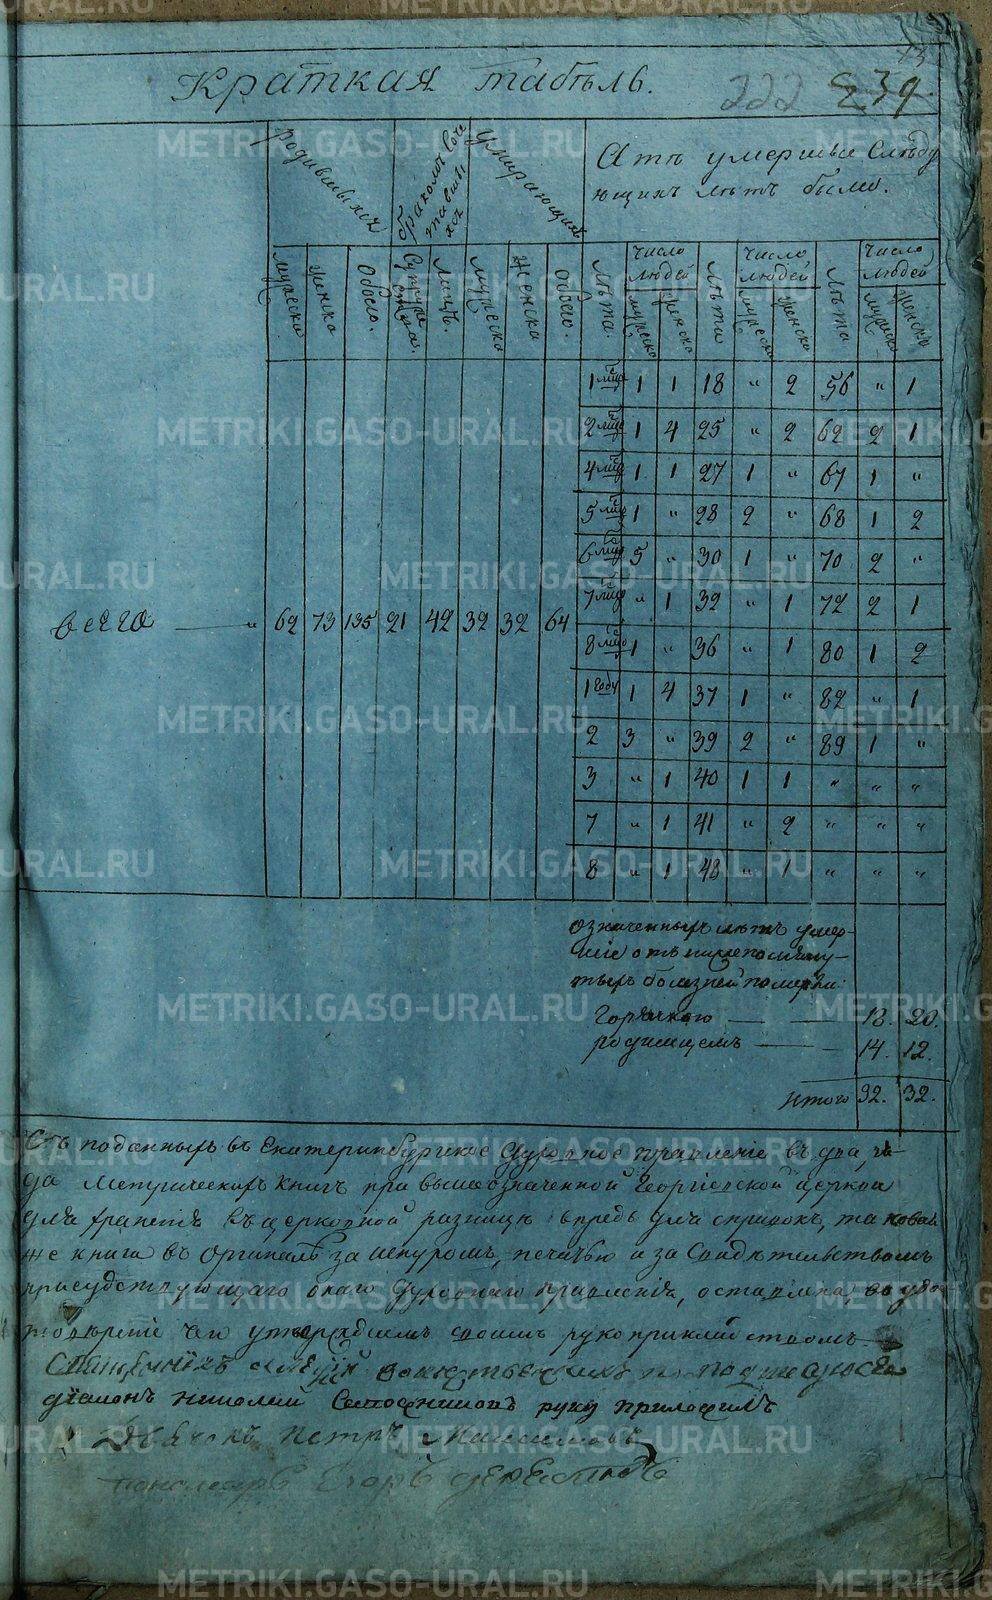 73
Краткая табѣль.
222 239.
родившихся
бракомъ соче
тавши
хся
умирающихъ
Атъ умершие Слѣду
ющихъ лѣтъ было.
мужеска
женска
обоего.
Супруже
ства.
Лицъ.
мужеска
женска
обоего.
Лѣта.
число
людей
мужеска
женска
Лѣта
число
людей
мужеска
женска
Лѣта
число
людей
мужеска
женска
1 мца 1 1 18 " 2 56 " 1
2 мца 1 4 25 " 2 62 2 1
4 мца 1 1 27 1 " 67 1 "
5 мца 1 " 28 2 " 68 1 2
6 мца 5 " 30 1 " 70 2 "
7 мца " 1 32 " 1 72 2 1
всего " 62 73 135 21 42 32 32 64
8 мца 1 " 36 " 1 80 1 2
1 году 1 4 37 1 " 82 " 1
2 3 " 39 2 " 89 1 "
3 " 1 40 1 1 " " "
7 " 1 41 " 2 " " "
8 " 1 48 " 1 " " "
означенныхъ лѣтъ умер-
шіе отъ нижепомяну-
тыхъ болезней померли:
Горячкою 18. 20.
родимцемъ 14. 12.
Итого 32. 32.
Съ поданныхъ въ Екатеринбургское Духовное правленіе въ два
да Метрическихъ книгъ при вышеозначенной Георгіевской церкви
для храненія въ церковной ризницѣ впредь для справокъ, такова
же книга въ оргиналѣ за шнуромъ, печатью и за Свидѣтельствомъ
присудствующаго онаго Духовнаго правленія, оставлена, во удо
товѣреніе чего утверждаемъ своимъ рукоприкладствомъ
Священникъ
діаконъ Николай руку приложилъ
Дьячокъ Петръ Максимовъ
пономарь Егоръ